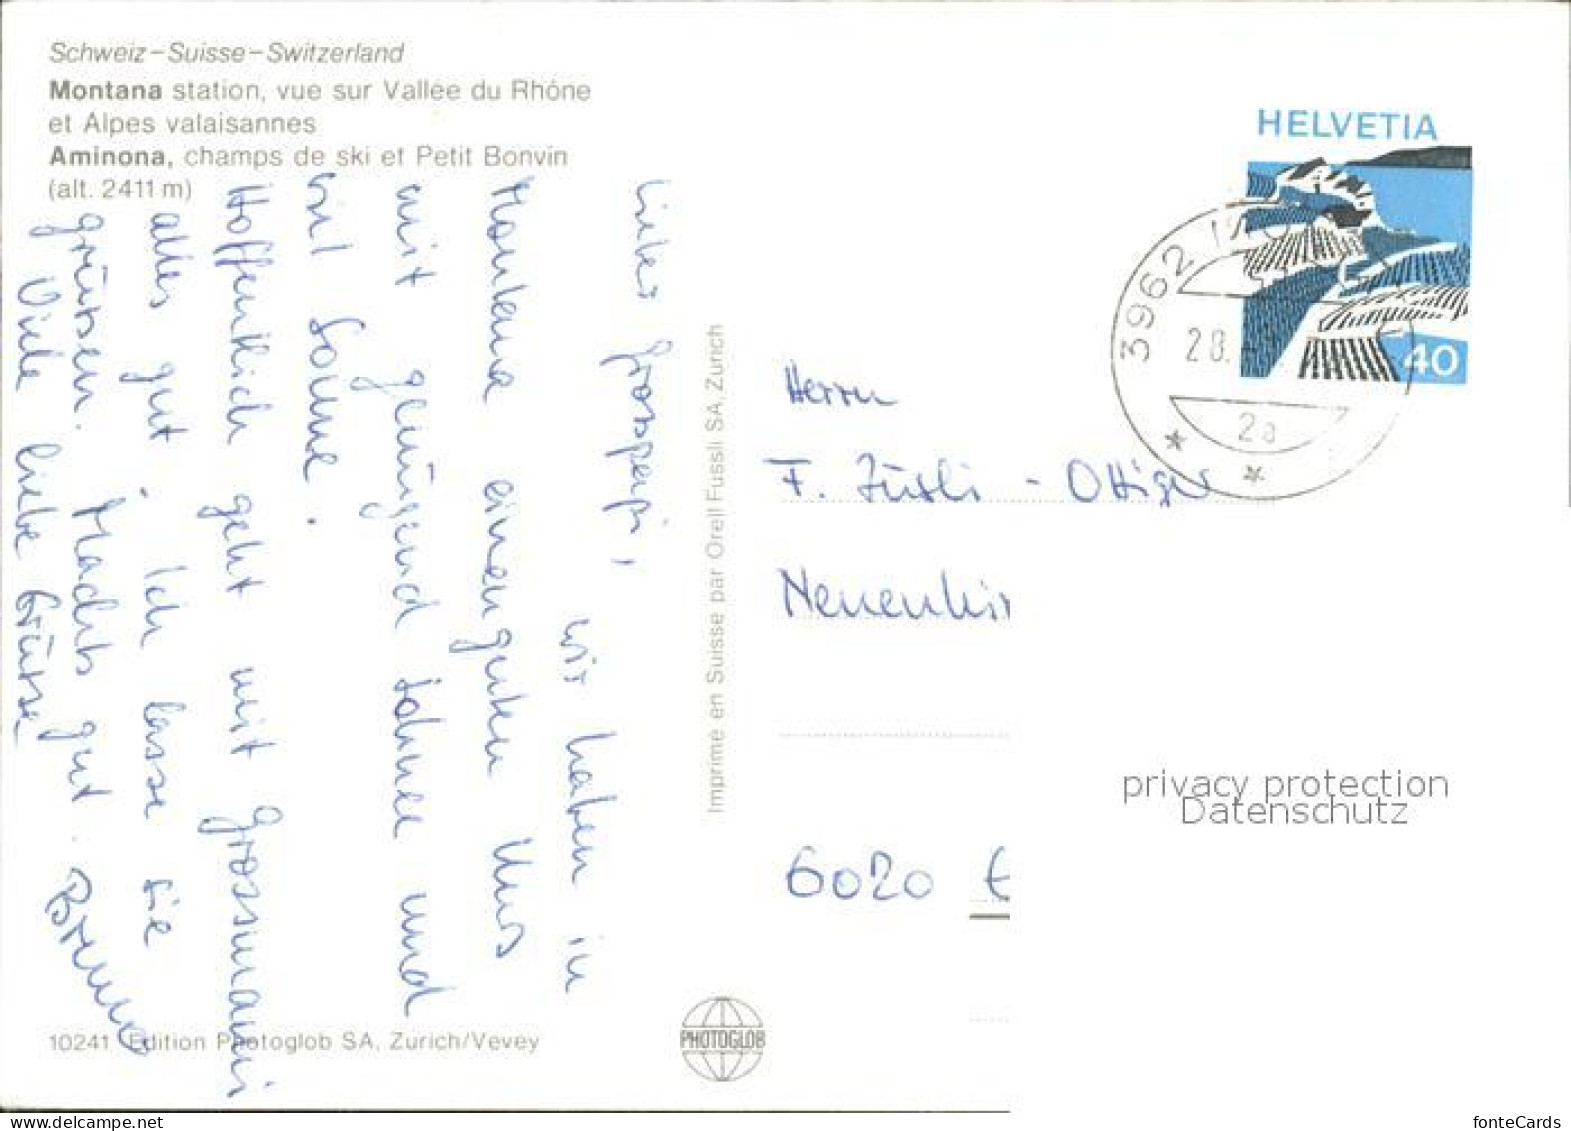 Schweiz–Suisse–Switzerland
Montana station, vue sur Vallée du Rhône
et Alpes valaisannes
Aminona, champs de ski et Petit Bonvin
(alt. 2411 m)
Lieber Grosspapi,
wir haben in
Montana einen guten
mit genügend Schnee und
viel Sonne.
Hoffentlich geht mit Grossmami
alles gut. Ich lasse sie
grüssen. Machts gut.
Viele liebe Grüsse
Bruno
10241 Edition Photoglob SA, Zurich/Vevey
Imprimé en Suisse par Orell Fussli SA, Zurich
PHOTOGLOB
HELVETIA
40
3962
28.
2a
Herrn
F.
Neuenkir
6020 E
privacy protection
Datenschutz
fonteCards